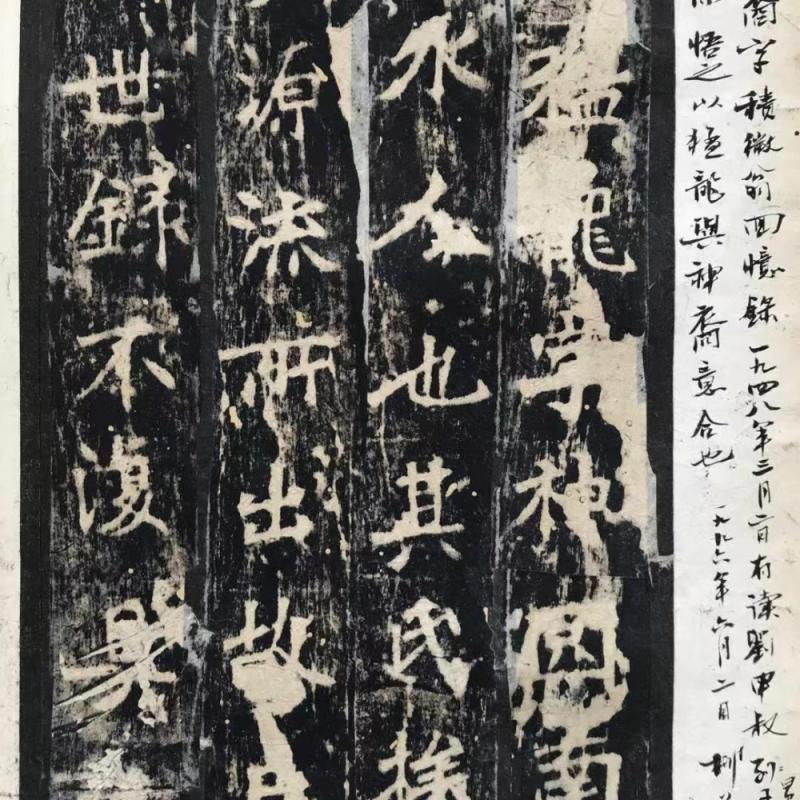 字積微翁回憶錄一九四八年三月二日有读劉申叔
悟之以猛龍與神意合也 一九九六年六月二日
猛龍字神囧南
水人也其氏族
源流所出故
世錄不復具